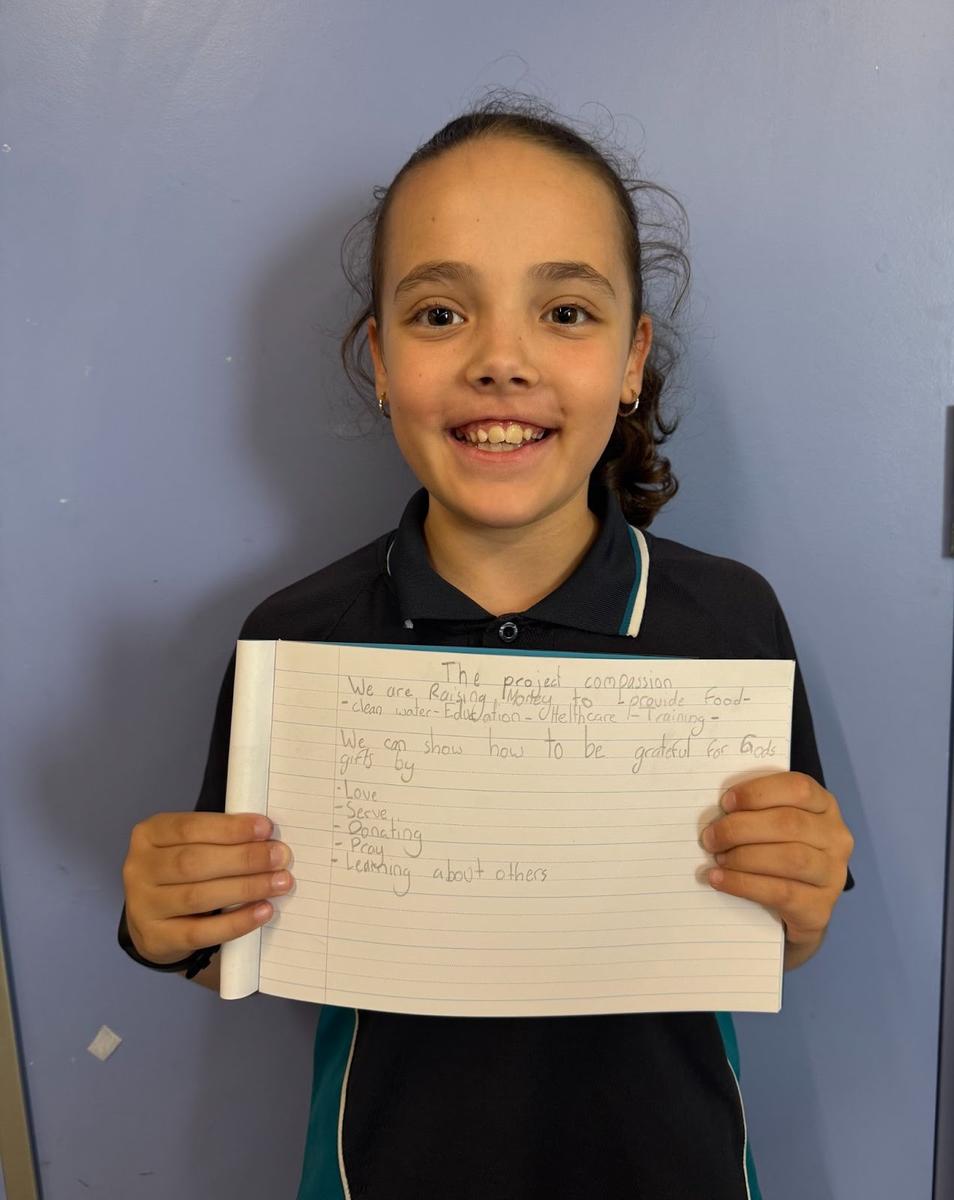 The project compassion
We are Raising Money to provide Food-
-clean water-Education-Healthcare-Training-
We can show how to be grateful for Gods
gifts by
-Love
-Serve
-Donating
-Pray
-Learning about others